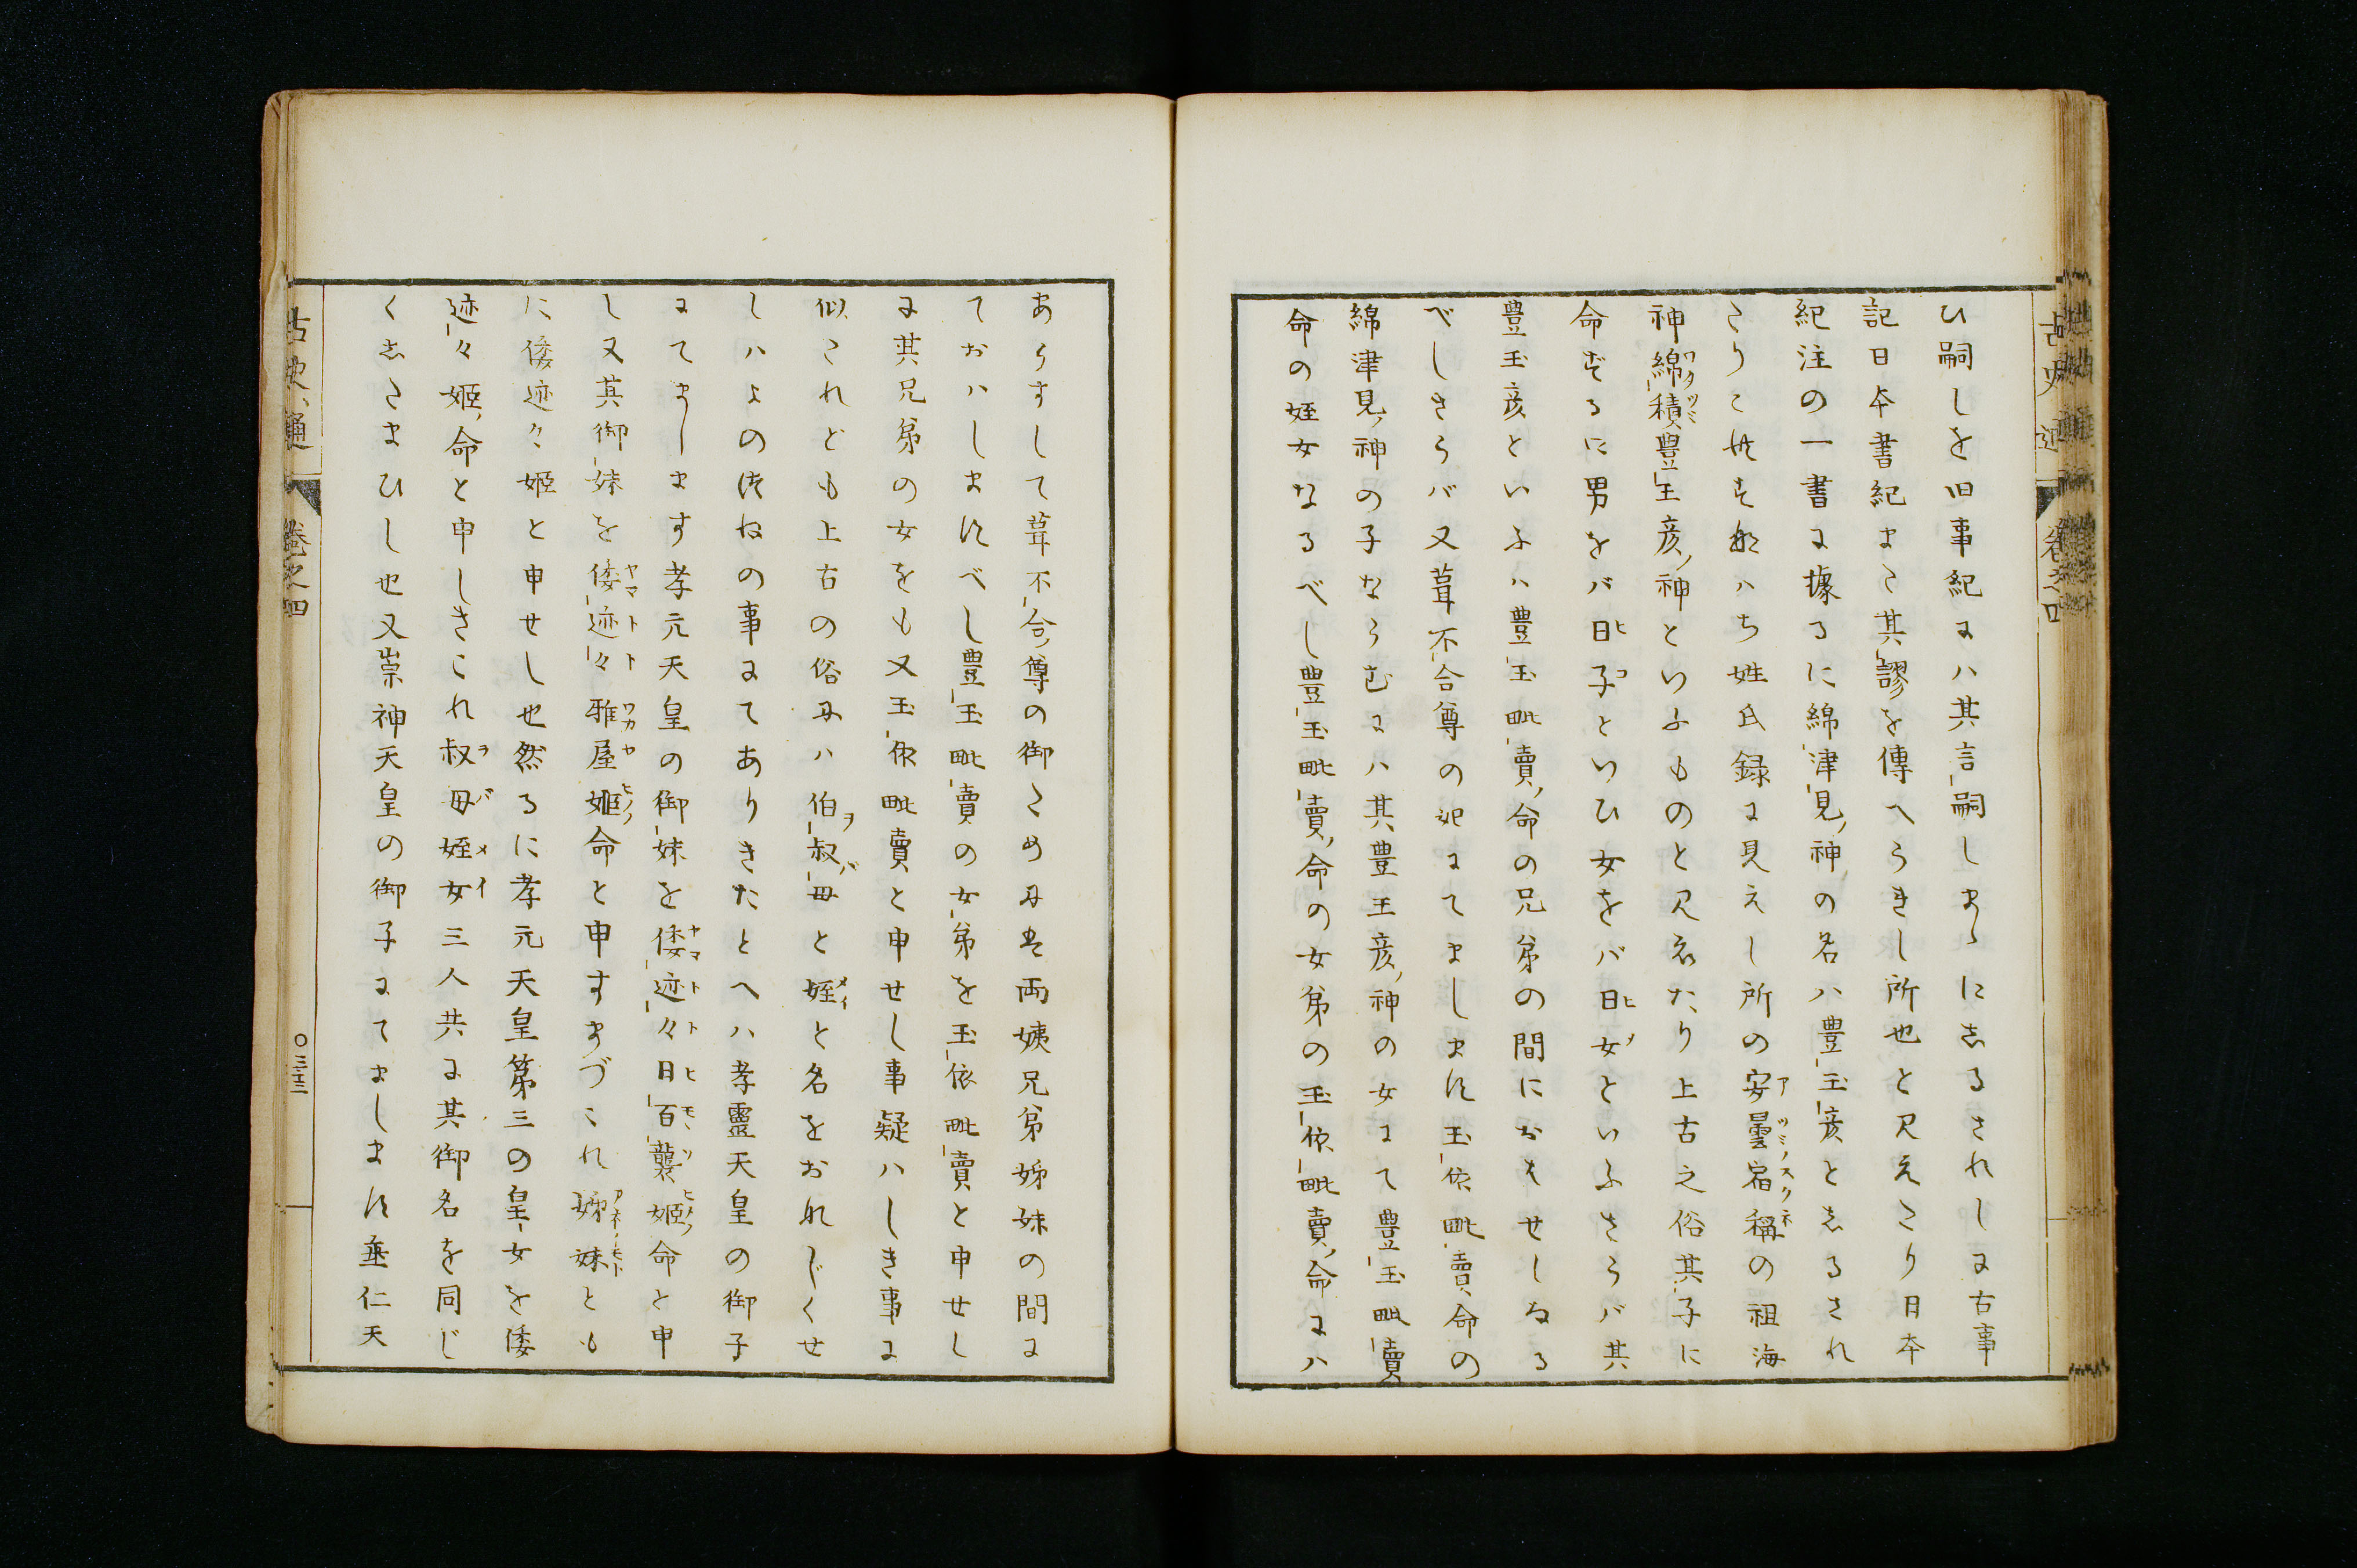 古史通 卷之四
ひ嗣しを旧事紀にハ其言嗣しまゝにしるされしに古事
記日本書紀また其謬を傳へられし所也と見えたり日本
紀注の一書に據るに綿津見ノ神の名ハ豊玉彦としるされ
たりこれすなハち姓氏録に見えし所の安曇宿祢の祖海
神綿積豊玉彦ノ神といふものと見えたり上古之俗其子に
命ずるに男をバ日子といひ女をバ日女といふさらバ其
豊玉彦といふハ豊玉毗賣ノ命の兄弟の間におはせしなる
べしさらバ又葺不合尊の妃にてまします玉依毗賣ノ命の
綿津見ノ神の子ならむにハ其豊玉彦ノ神の女にて豊玉毗賣
命の姪女なるべし豊玉毗賣ノ命の女弟の玉依毗賣ノ命にハ
あらすして葺不合ノ尊の御ために是両姨兄弟姉妹の間に
ておハしますべし豊玉毗賣の女弟を玉依毗賣と申せし
に其兄弟の女をも又玉依毗賣と申せし事疑ハしき事に
似たれども上古の俗にハ伯叔母と姪と名をおなじくせ
しハよのつねの事にてありきたとへハ孝靈天皇の御子
にてまします孝元天皇の御妹を倭迹々日百襲姫命と申
し又其御妹を倭迹々雅屋姫命と申すまづこれ姉妹とも
に倭迹々姫と申せし也然るに孝元天皇第三の皇女を倭
迹々姫ノ命と申しきこれ叔母姪女三人共に其御名を同じ
くしたまひし也又崇神天皇の御子にてまします垂仁天
古史通 卷之四 ○三十三